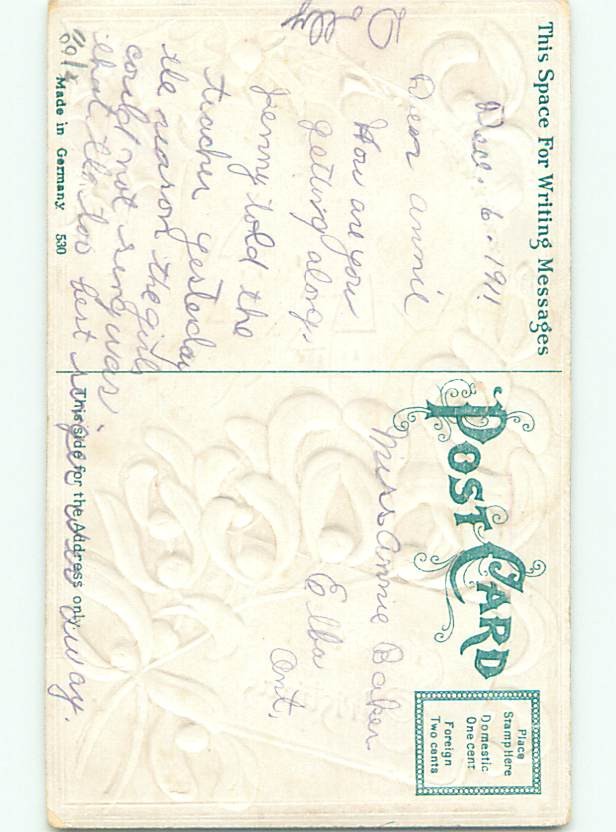 This Space For Writing Messages
POST CARD
Place
Stamp Here
Domestic
One cent
Foreign
Two cents
Dec. 6. 1911
Dear Annie
How are you
getting along.
Jenny told the
teacher yesteday
the reason the girls
could not sing was
that the two best singers was away.
Miss Annie Baker
Elba
Ont.
Made in Germany 530
This side for the Address only.